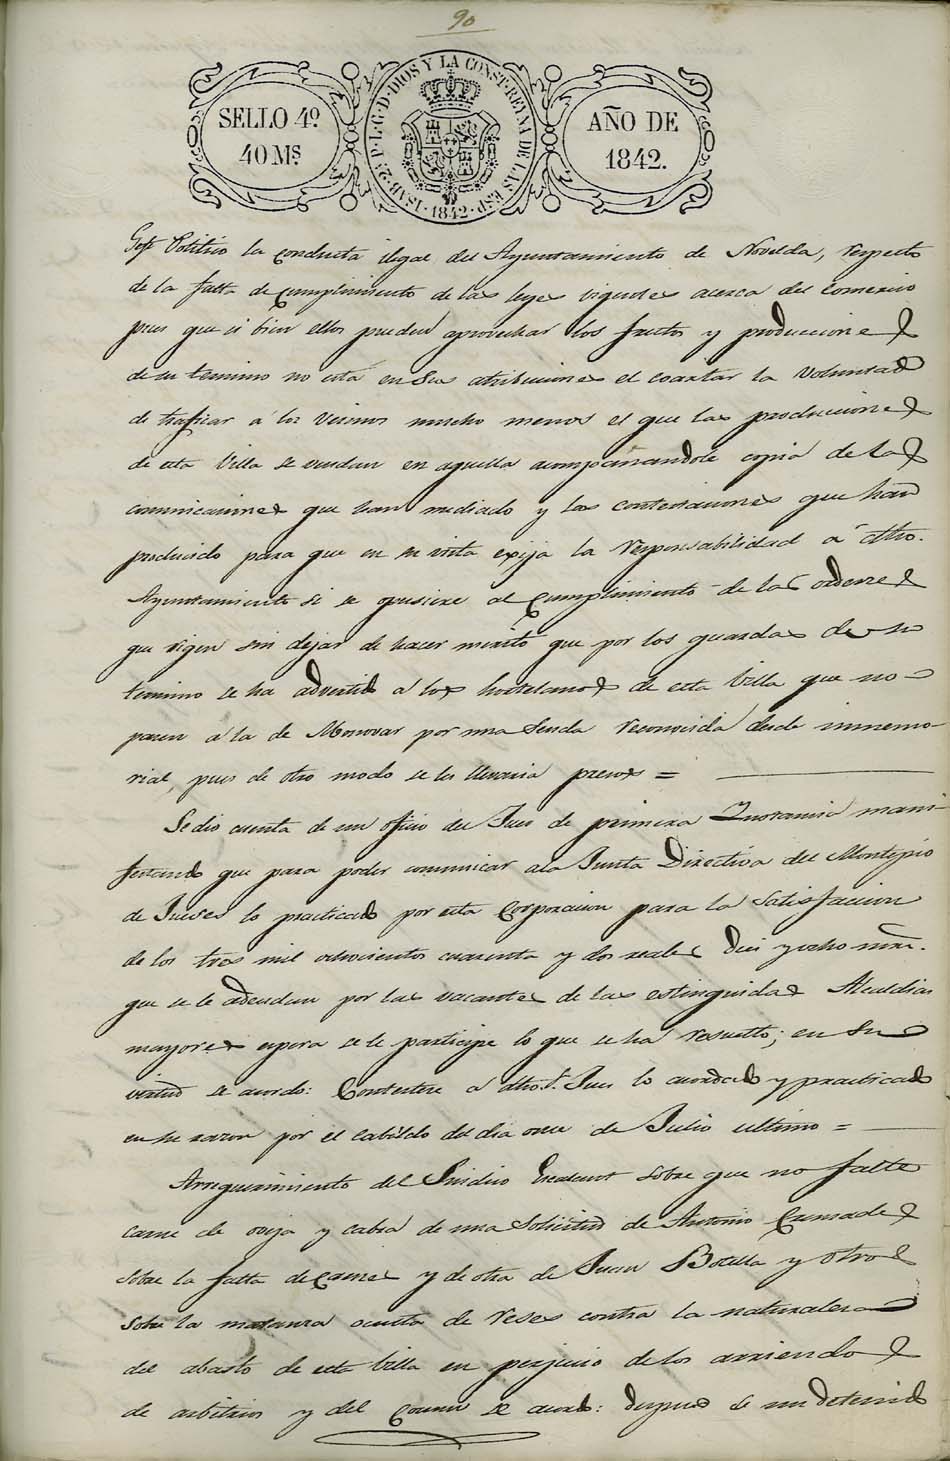 90
SELLO 4º
40 Ms
ISAB. 2ª P. L. G. D. DIOS Y LA CONST. REYNA DE LAS ESP. 1842
AÑO DE
1842.
Gefe Politico la conducta ilegal del Ayuntamiento de Novelda, respecto
de la falta de cumplimiento de las leyes vigentes acerca del comercio
pues que si bien ellos pueden aprovechar los frutos y producciones
de su termino no está en sus atribuciones el coartar la voluntad
de traficar á los vecinos mucho menos el que las producciones
de esta Villa se vendan en aquella acompañandole copia de las
comunicaciones que han mediado y las contestaciones que han
producido para que en su vista exija la responsabilidad á dho.
Ayuntamiento si se opusiere al cumplimiento de las ordenes
que rigen sin dejar de hacer merito que por los guardas de su
termino se ha advertido á los hortelanos de esta Villa que no
pasen á la de Monovar por una senda reconocida desde inmemo-
rial, pues de otro modo se les llevaria presos =
Se dio cuenta de un oficio del Juez de primera Instancia mani-
festando que para poder comunicar a la Junta Directiva del Montepio
de Jueces lo practicado por esta Corporacion para la satisfaccion
de los tres mil ochocientos cuarenta y dos reales diez y ocho mrs.
que se le adeudan por las vacantes de las estinguidas Alcaldias
mayores espera se le participe lo que se ha resuelto; en su
virtud se acordo: Contestese á dho. Sr. Juez lo acordado y practicado
en su razon por el cabildo del dia once de Julio ultimo =
A requirimiento del Sindico sobre que no falte
carne de oveja y cabra de una solicitud de Antonio Cremades
sobre la falta de carnes y de otra de Juan Botella y otros
sobre la matanza oculta de reses contra la naturaleza
del abasto de esta Villa en perjuicio de los arriendos
de arbitrios y del comun se acordo: despues de un detenido